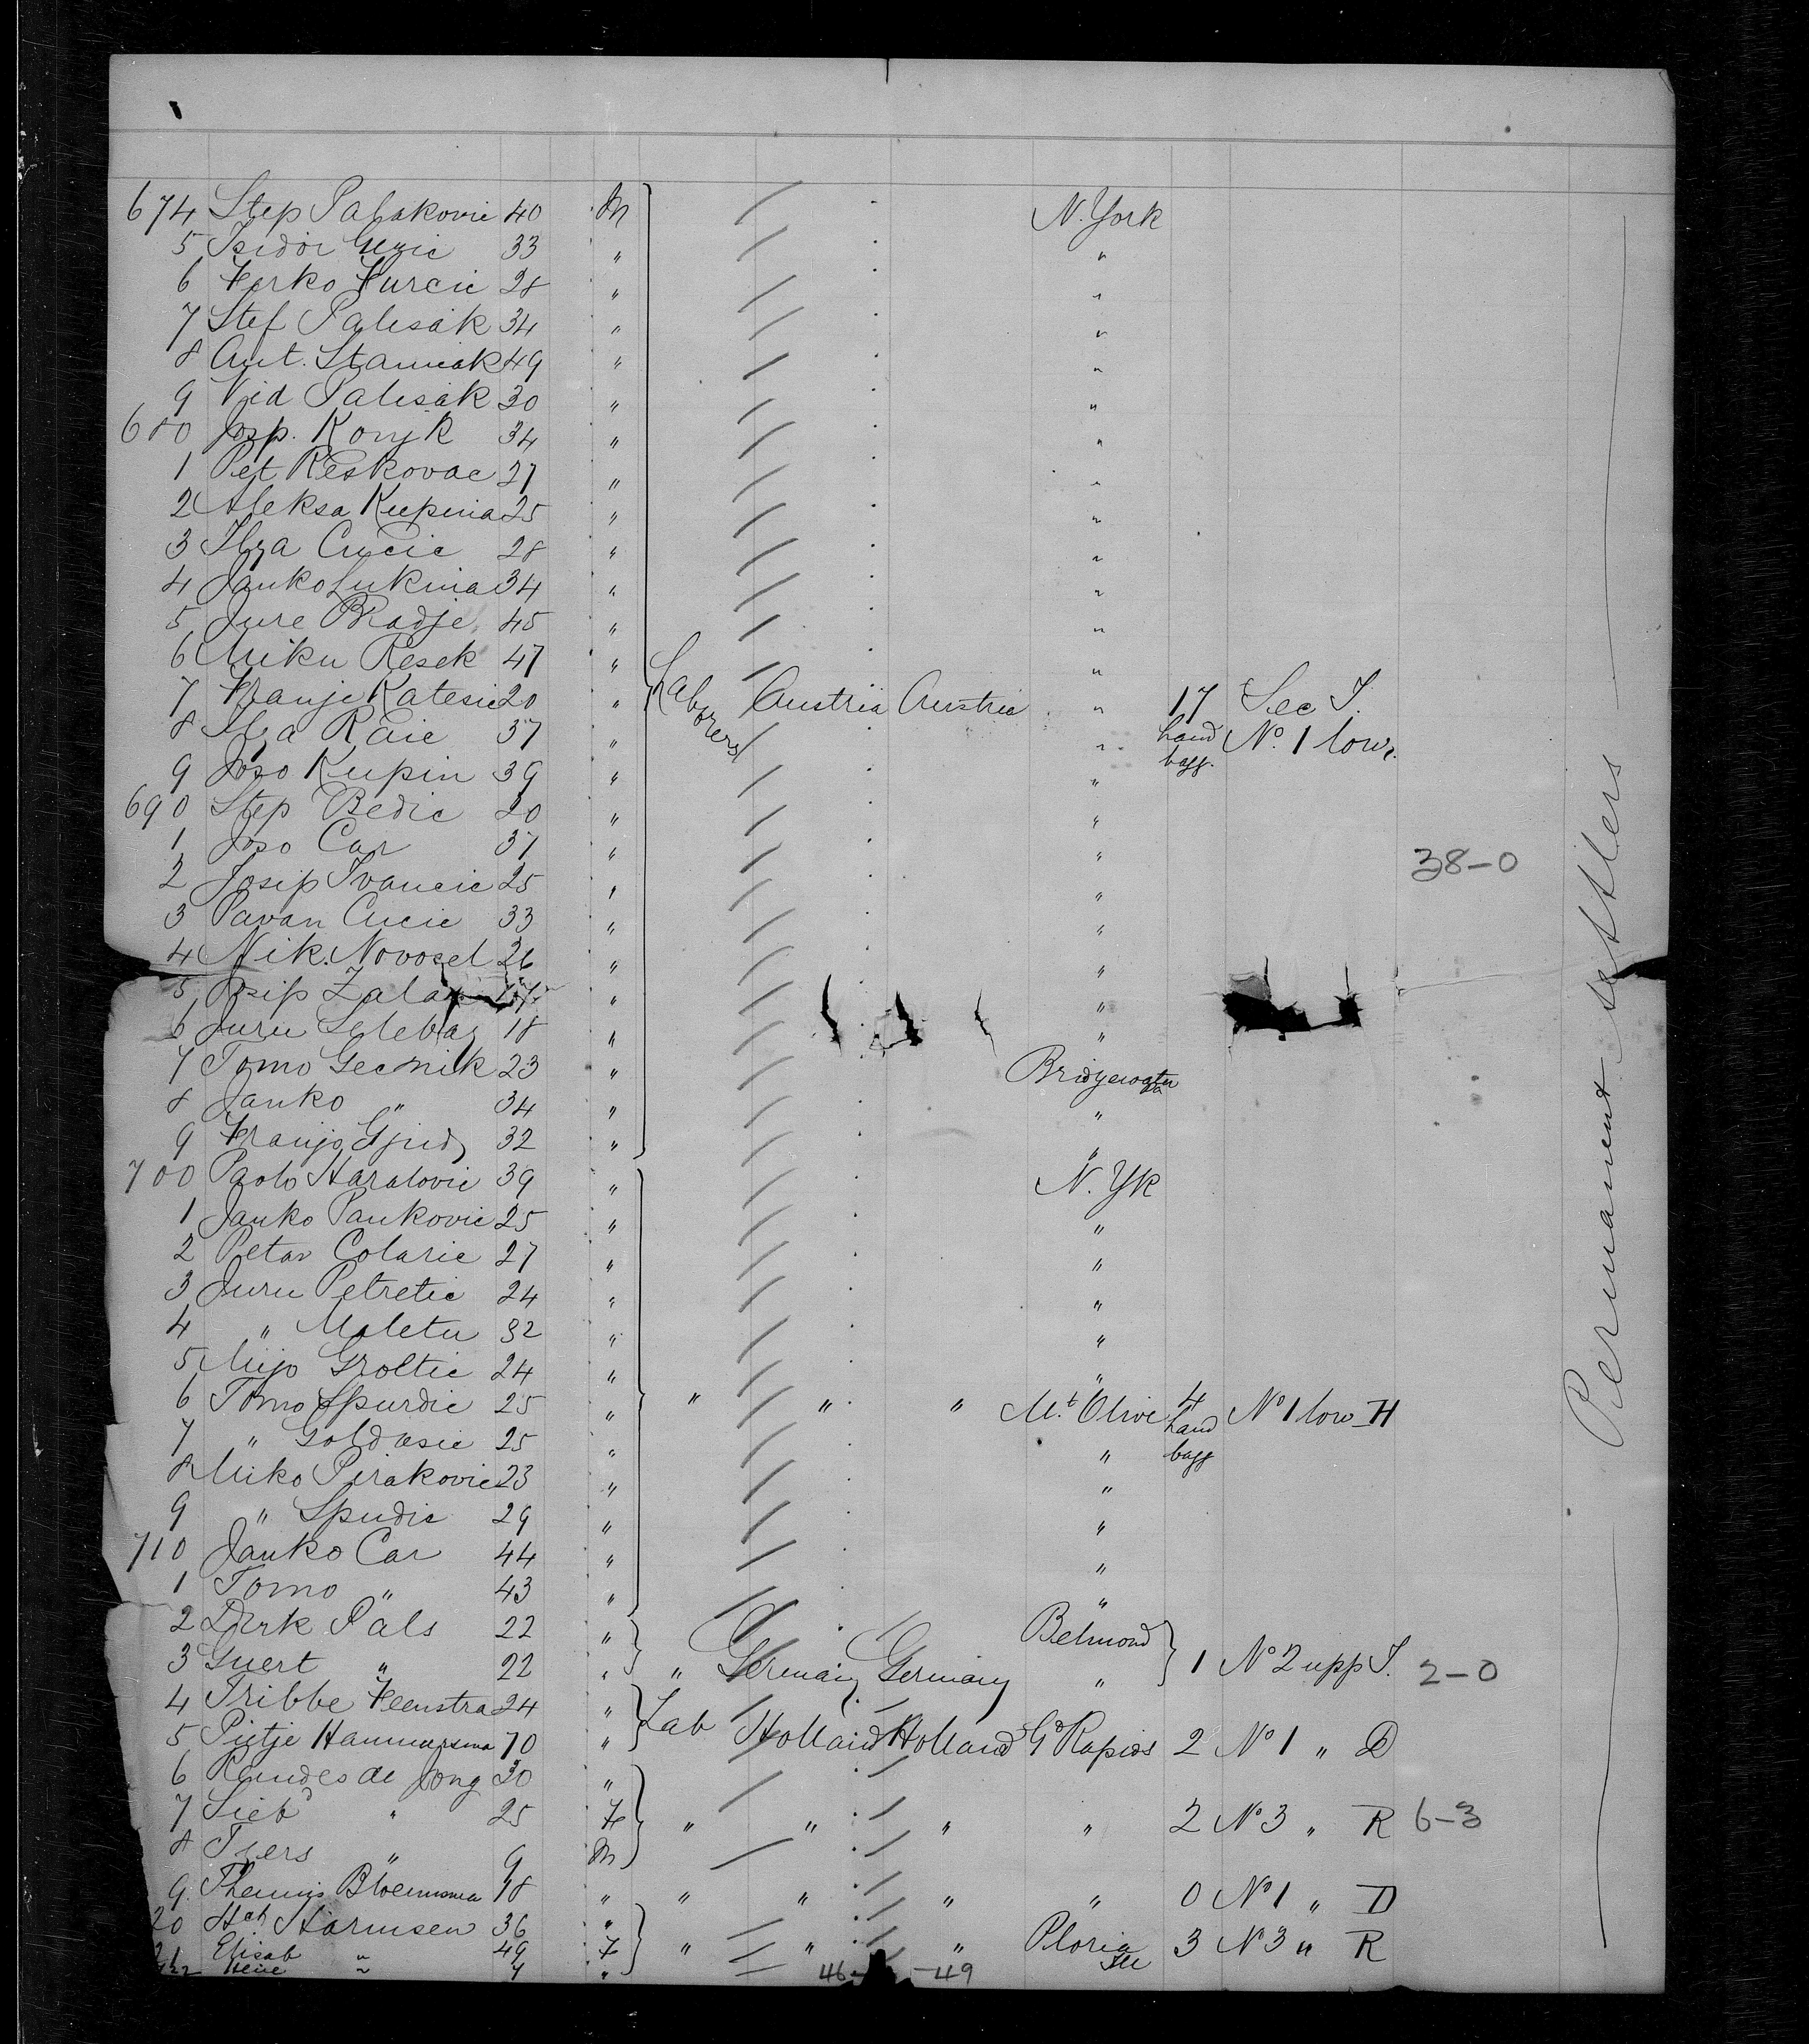 674 Step Palakovic 40 M N. York
5 Isidor Guzic 33 " "
6 Ferko Furcic 28 " "
7 Stef Palesak 34 " "
8 Ant. Staniak 49 " "
9 Vid Palesak 30 " "
680 Josp. Konjk 34 " "
1 Pet Reskovac 27 " "
2 Aleksa Kupina 25 " "
3 Ilya Cucic 28 " "
4 Janko Lukina 34 " "
5 Jure Bradje 45 " "
6 Miku Resek 47 " "
7 Franje Katesic 20 " Laborers Austria Austria " 17 Sec I.
8 Ilya Raic 37 " " hand bagg. No. 1 low.
9 Joso Kupin 39 " "
690 Step Bedic 20 " "
1 Joso Car 37 " " 38-0
2 Josip Ivancic 25 " "
3 Pavan Cucic 33 " "
4 Nik. Novosel 26 " "
5 Josip " "
6 Juru 18 " "
7 Tomo Gecnik 23 " Bridgewater
8 Janko " 34 " "
9 Franjo 32 " "
700 Paolo Haralovic 39 " N. Yk
1 Janko Pankovic 25 " "
2 Petar Colaric 27 " "
3 Juru Petretic 24 " "
4 " Maletu 32 " "
5 Mijo Groltic 24 " "
6 Tomo Spurdic 25 " " " " Mt. Olive 4 hand bagg No 1 low H
7 " Goldasic 25 " "
8 Miko Pirakovic 23 " "
9 " Spudic 29 " "
710 Janko Car 44 " "
1 Tomo " 43 " "
2 Dirk Pals 22 " Belmond
3 Guert " 22 " " Germany Germany " 1 No 2 upp I. 2-0
4 Tribbe Feenstra 24 "
5 Pietje 70 " Lab Holland Holland Gd Rapids 2 No 1 " D
6 de Jong 30 "
7 Sieb " 25 F " " " " 2 No 3 " R 6-3
8 Tjers " 9 M
9 Bloemsma 18 " " " " " 0 No 1 " D
20 Harmsen 36 "
21 Elisab " 49 F " " " Ploria Ill 3 No 3 " R
722 " "
46 -49
Permanent settlers